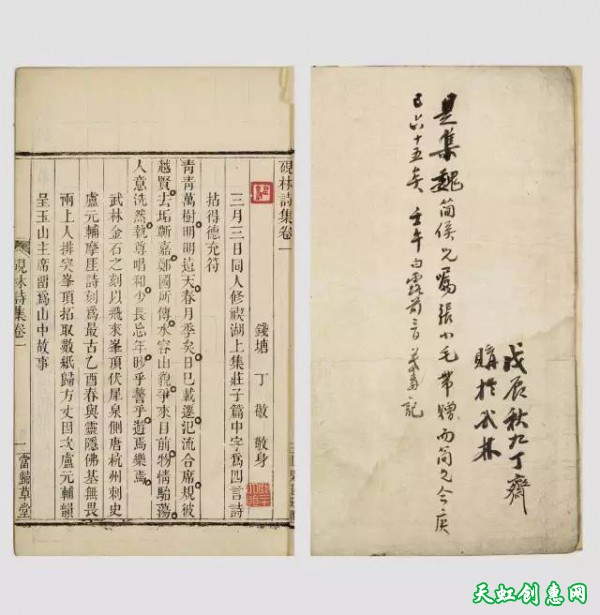 硯林詩集卷一
錢塘 丁敬 敬身
三月三日同人修禊湖上集莊子篇中字爲四言詩
拈得德充符
青青萬樹明明遠天春月季矣日巳載遷氾流合席規彼
越賢去垢斬嘉鄭國所傳水容山貌爭來目前物情駘蕩
人意洗然執尊唱和少長忘年眇乎謷乎遊焉樂焉
武林金石之刻以飛來峯頂伏犀泉側唐杭州刺史
盧元輔摩崖詩刻爲最古乙酉春與靈隱佛基無畏
兩上人排突峯頂拓取數紙歸方丈因次盧元輔韻
呈玉山主席畱爲山中故事
硯林詩集卷一 一 當歸草堂
戊辰秋九丁齋
購於武林
是集魏簡侯兄屬張小毛帶贈而簡兄今庚
已六十五矣 壬午白露前 記
天虹创意网